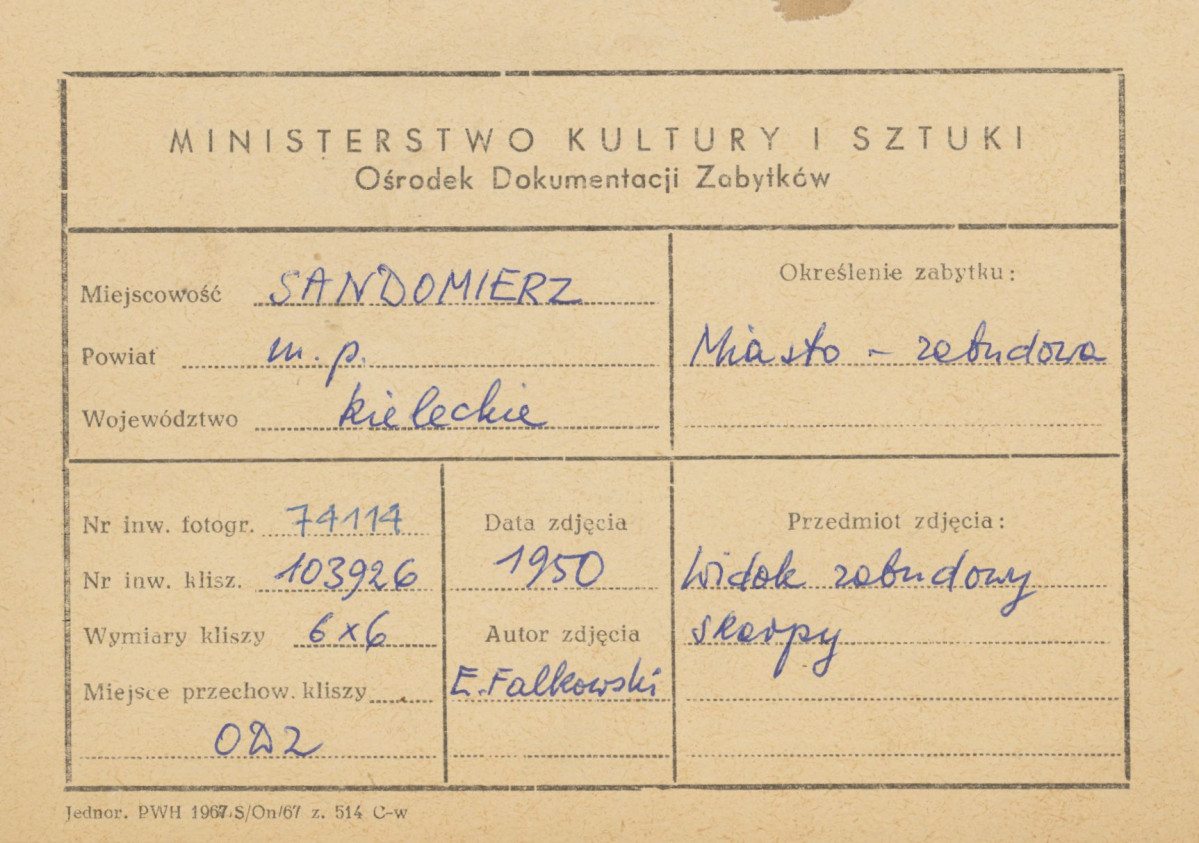 MINISTERSTWO KULTURY I SZTUKI
Ośrodek Dokumentacji Zabytków
Miejscowość SANDOMIERZ
Powiat m. p.
Województwo kieleckie
Określenie zabytku:
Miasto – zabudowa
Nr inw. fotogr. 74114
Nr inw. klisz. 103926
Wymiary kliszy 6x6
Miejsce przechow. kliszy
ODZ
Data zdjęcia
1950
Autor zdjęcia
E. Falkowski
Przedmiot zdjęcia:
Widok zabudowy
skarpy
Jednor. PWH 1967.S/On/67 z. 514 C-w